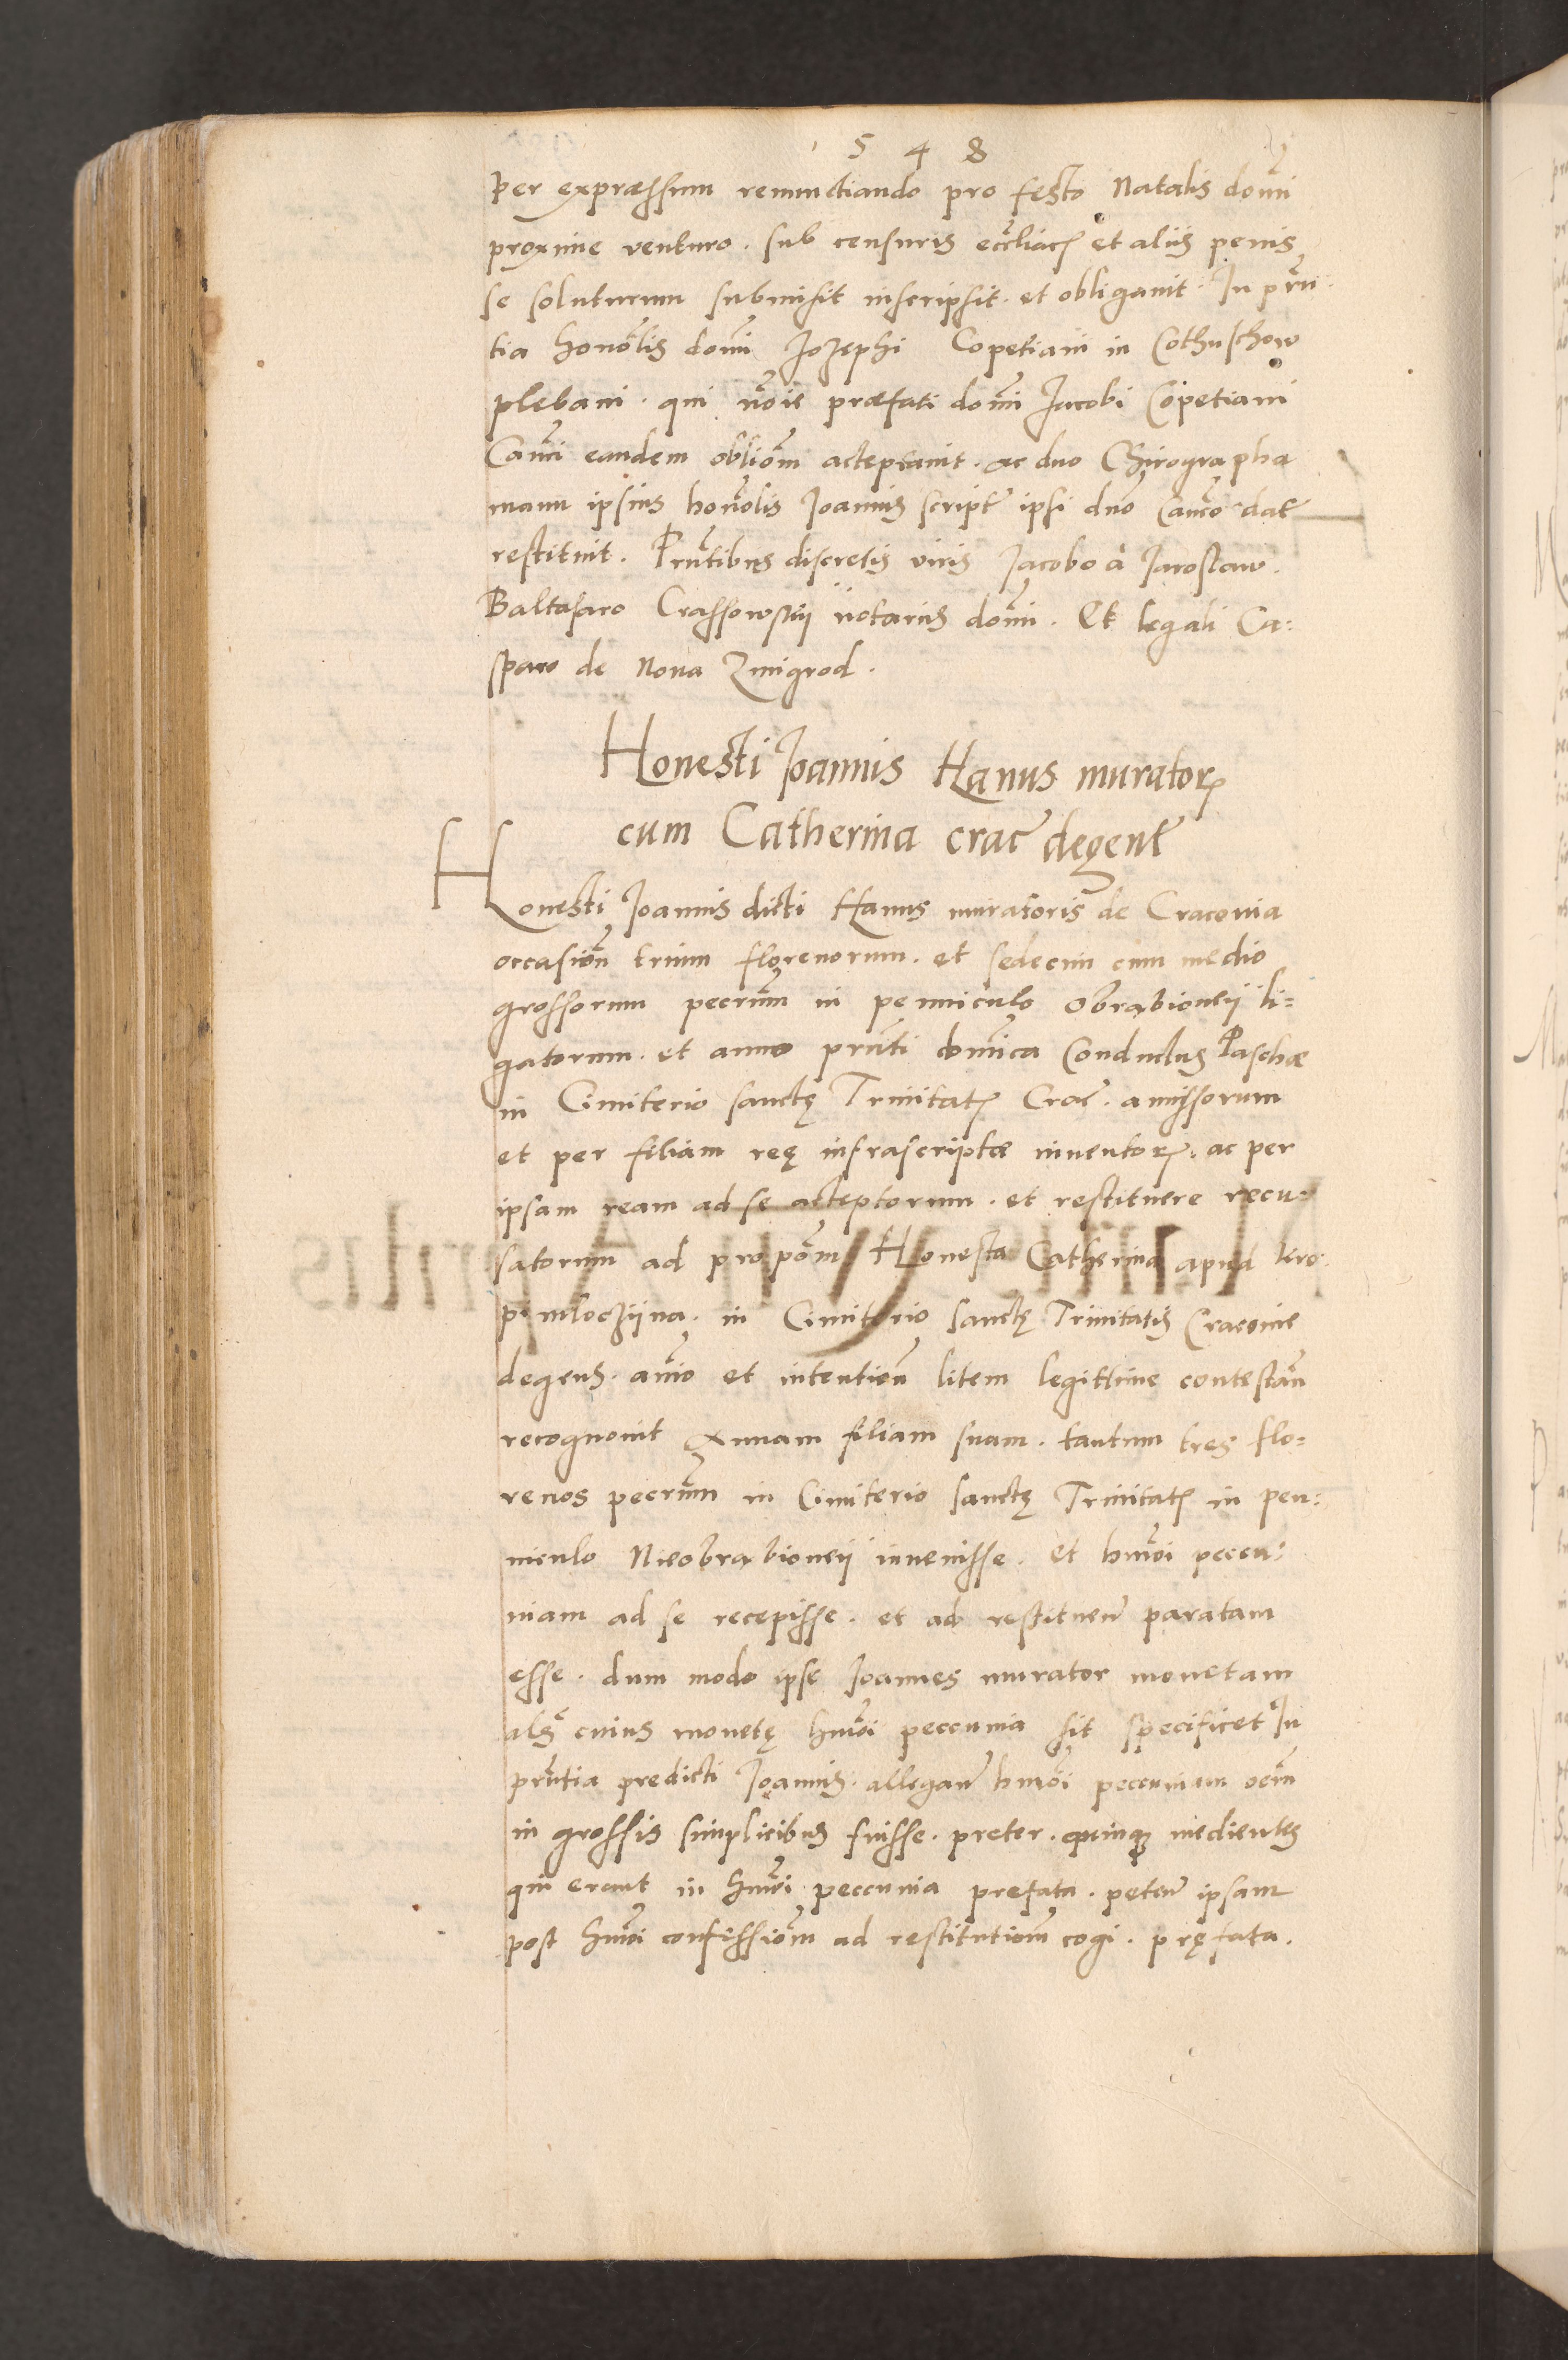 548
per expræssum renunctiando pro festo Natalis domi
proxime venturo. sub censuris eccliac et aliis penis
se soluturum submisit inscripsit et obligavit. In prn:
tia honolis domi Jozephi Copetiani in Cothuschow
plebani. qui noie præfati domi Jacobi Copetiani
Canci eandem obliom acteptavit. ac duo Chirographa
manu ipsius honolis Joannis script ipsi dno Canco dat
restituit. Prntibus discretis viris Jacobo à Jarostaw.
Baltasaro Crassowskij notariis domi. Et legali Ca:
sparo de Nova Zmigrod.
Honesti Joannis Hanus murator
cum Catherina crac degent
Honesti Joannis dicti Hanus muratoris de Cracovia
occasion trium florenorum. et sedecim cum medio
grossorum peccrum in penniculo obrabioneij li:
gatorum. et anno prnti domica Conductus Paschæ
in Cimiterio sanctę Trinitat Crac. amissorum
et per filiam reę infrascriptæ inventor. ac per
ipsam ream ad se acteptorum. et restituere recu:
satorum ad propom Honesta Catherina apud
in Cimiterio sanctę Trinitatis Cracovie
degens. animo et intention litem legittime contestan
recognovit Annam filiam suam. tantum tres flo:
renos peccrum in Cimiterio sanctę Trinitat in pen:
niculo Nieobrabioneij invenisse. et hmoi peccu:
niam ad se recepisse. et ad restituend paratam
esse. dum modo ipse Joannes murator monetam
als cuius monetę hmoi peccunia sit specificet In
prntia predicti Joannis. allegan hmoi peccuniam oem
in grossis simplicibus fuisse. preter. quinq medientes
qui erant in hmoi peccunia prefata. peten ipsam
post hmoi confessiom ad restitutiom cogi. pręfata.